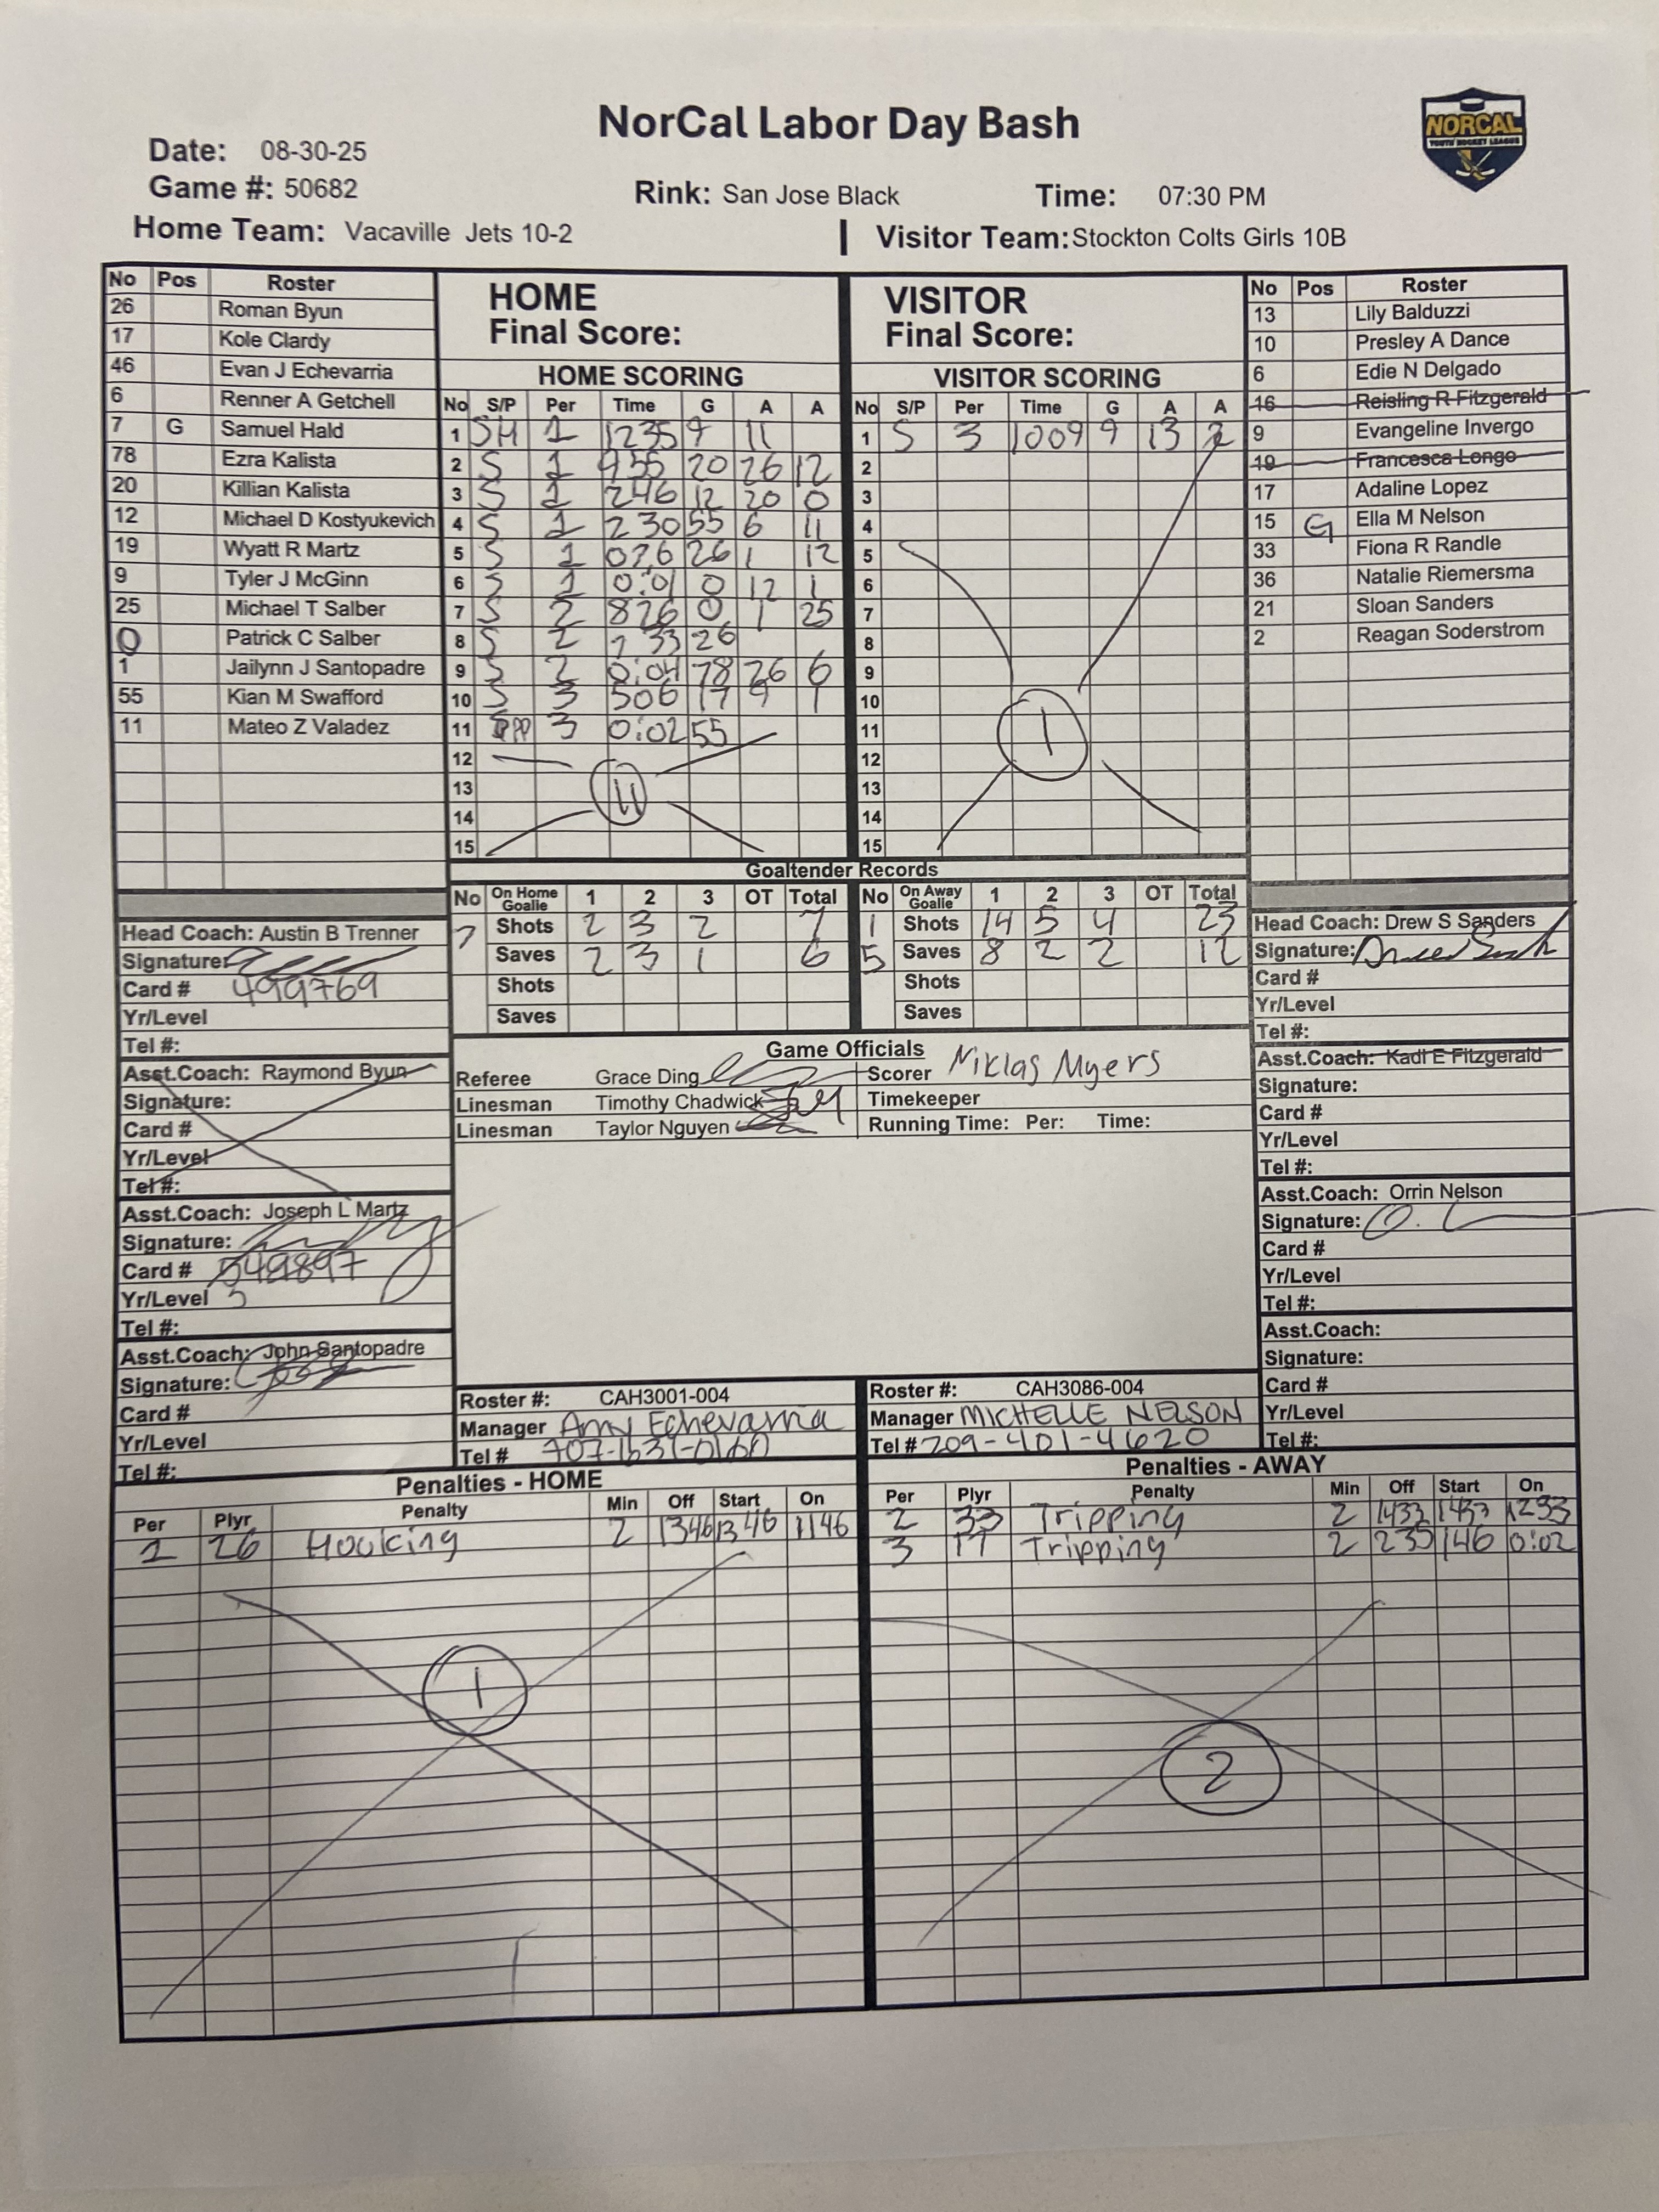 NorCal Labor Day Bash
NORCAL
YOUTH HOCKEY LEAGUE
Date: 08-30-25
Game #: 50682
Rink: San Jose Black
Time: 07:30 PM
Home Team: Vacaville Jets 10-2
Visitor Team: Stockton Colts Girls 10B
No Pos Roster
26 Roman Byun
17 Kole Clardy
46 Evan J Echevarria
6 Renner A Getchell
7 G Samuel Hald
78 Ezra Kalista
20 Killian Kalista
12 Michael D Kostyukevich
19 Wyatt R Martz
9 Tyler J McGinn
25 Michael T Salber
0 Patrick C Salber
1 Jailynn J Santopadre
55 Kian M Swafford
11 Mateo Z Valadez
HOME
Final Score:
HOME SCORING
No S/P Per Time G A A
1 SH 1 1235 9 11
2 S 1 955 20 26 12
3 S 1 246 12 20 0
4 S 1 230 55 6 11
5 S 1 26 1 12
6 S 1 0:01 0 12 1
7 S 2 826 0 1 25
8 S 2 733 26
9 S 2 0:04 78 26 6
10 S 3 506 17 9 1
11 PP 3 0:02 55
12
13
14
15
11
VISITOR
Final Score:
VISITOR SCORING
No S/P Per Time G A A
1 S 3 1009 9 13 2
2
3
4
5
6
7
8
9
10
11
12
13
14
15
1
No Pos Roster
13 Lily Balduzzi
10 Presley A Dance
6 Edie N Delgado
16 Reisling R Fitzgerald
9 Evangeline Invergo
19 Francesca Longo
17 Adaline Lopez
15 G Ella M Nelson
33 Fiona R Randle
36 Natalie Riemersma
21 Sloan Sanders
2 Reagan Soderstrom
Goaltender Records
No On Home Goalie 1 2 3 OT Total
7 Shots 2 3 2 7
Saves 2 3 1 6
Shots
Saves
No On Away Goalie 1 2 3 OT Total
15 Shots 14 5 4 23
Saves 8 2 2 12
Shots
Saves
Head Coach: Austin B Trenner
Signature:
Card # 499769
Yr/Level
Tel #:
Asst.Coach: Raymond Byun
Signature:
Card #
Yr/Level
Tel #:
Asst.Coach: Joseph L Martz
Signature:
Card # 549897
Yr/Level 5
Tel #:
Asst.Coach: John Santopadre
Signature:
Card #
Yr/Level
Tel #:
Game Officials
Referee Grace Ding
Linesman Timothy Chadwick
Linesman Taylor Nguyen
Scorer Niklas Myers
Timekeeper
Running Time: Per: Time:
Head Coach: Drew S Sanders
Signature:
Card #
Yr/Level
Tel #:
Asst.Coach: Kadi E Fitzgerald
Signature:
Card #
Yr/Level
Tel #:
Asst.Coach: Orrin Nelson
Signature:
Card #
Yr/Level
Tel #:
Asst.Coach:
Signature:
Card #
Yr/Level
Tel #:
Roster #: CAH3001-004
Manager Amy Echevarria
Tel #
Roster #: CAH3086-004
Manager MICHELLE NELSON
Tel # 209-401-4620
Penalties - HOME
Per Plyr Penalty Min Off Start On
1 26 Hooking 2 1346 1346 1146
1
Penalties - AWAY
Per Plyr Penalty Min Off Start On
2 33 Tripping 2 1433 1433 1233
3 17 Tripping 2 235 146 0:02
2